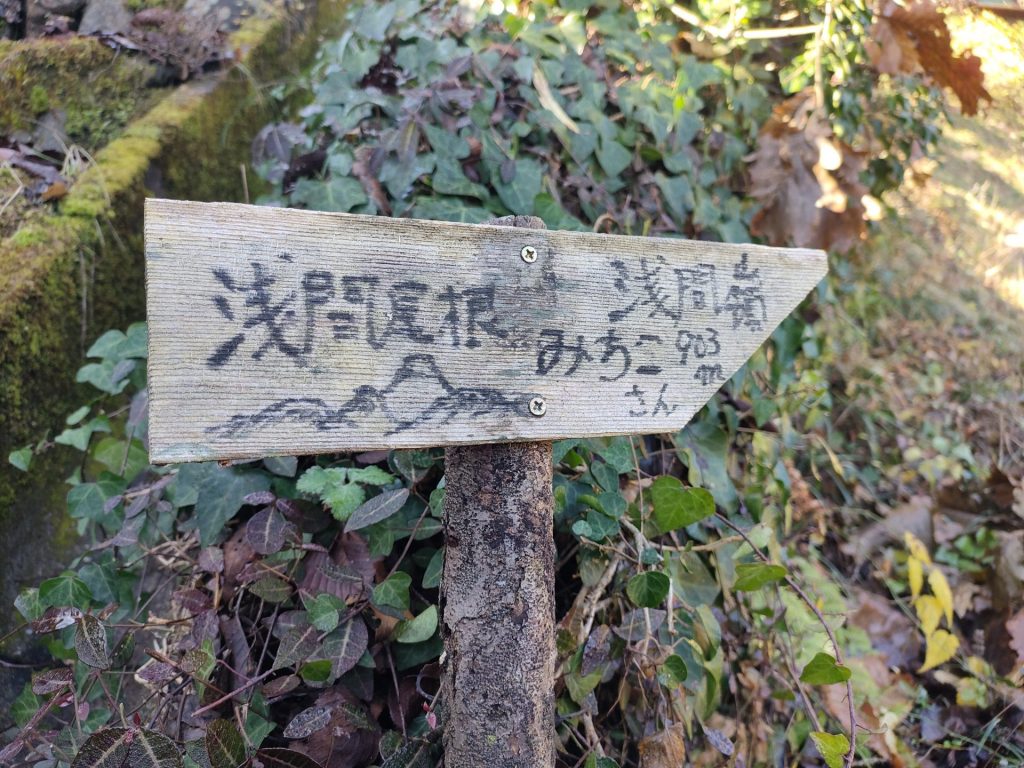 浅間尾根
浅間嶺
903m
みちこ
さん